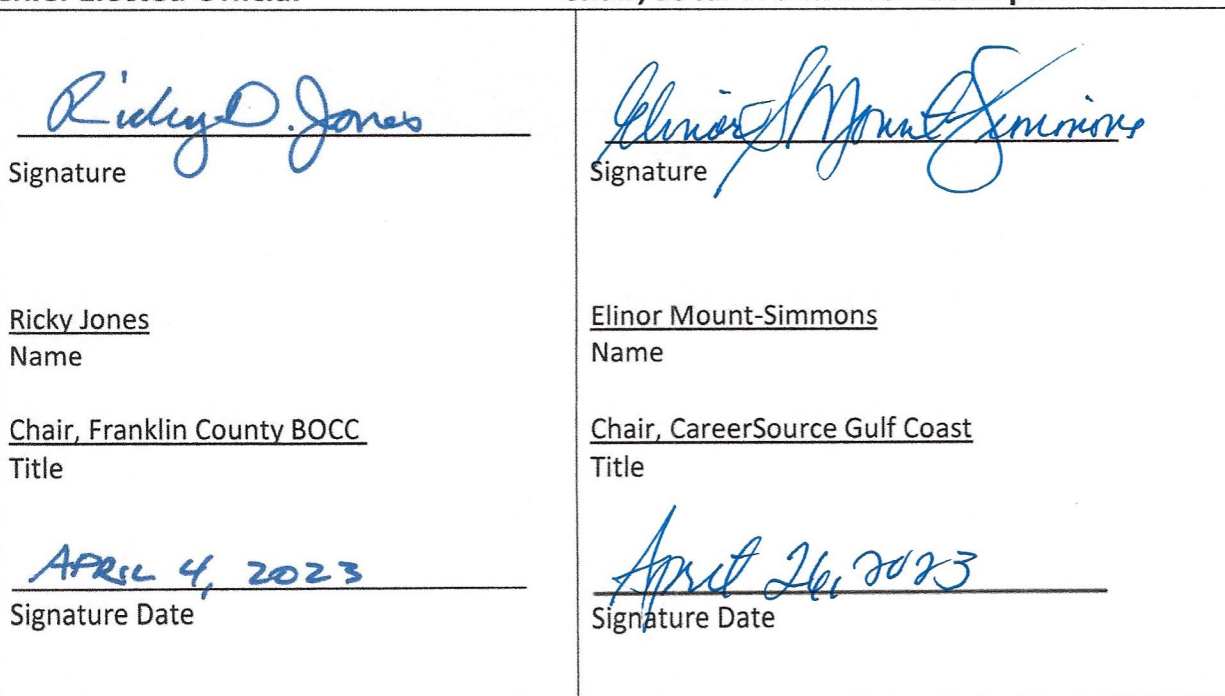 Ricky D. Jones
Signature
Ricky Jones
Name
Chair, Franklin County BOCC
Title
APRIL 4, 2023
Signature Date
Elinor S Mount-Simmons
Signature
Elinor Mount-Simmons
Name
Chair, CareerSource Gulf Coast
Title
April 26, 2023
Signature Date